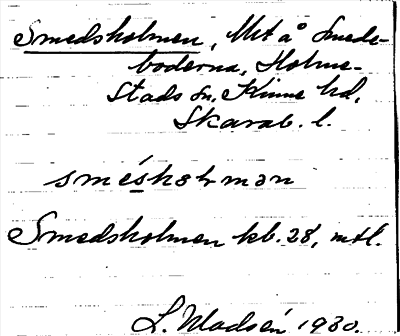 Smedsholmen, Utt å Smede-
boderna, Holme-
stads sn, Kinne hd,
Skarab. l.
smésholmən
Smedsholmen kb. 28, mtl.
L. Madsén 1930.